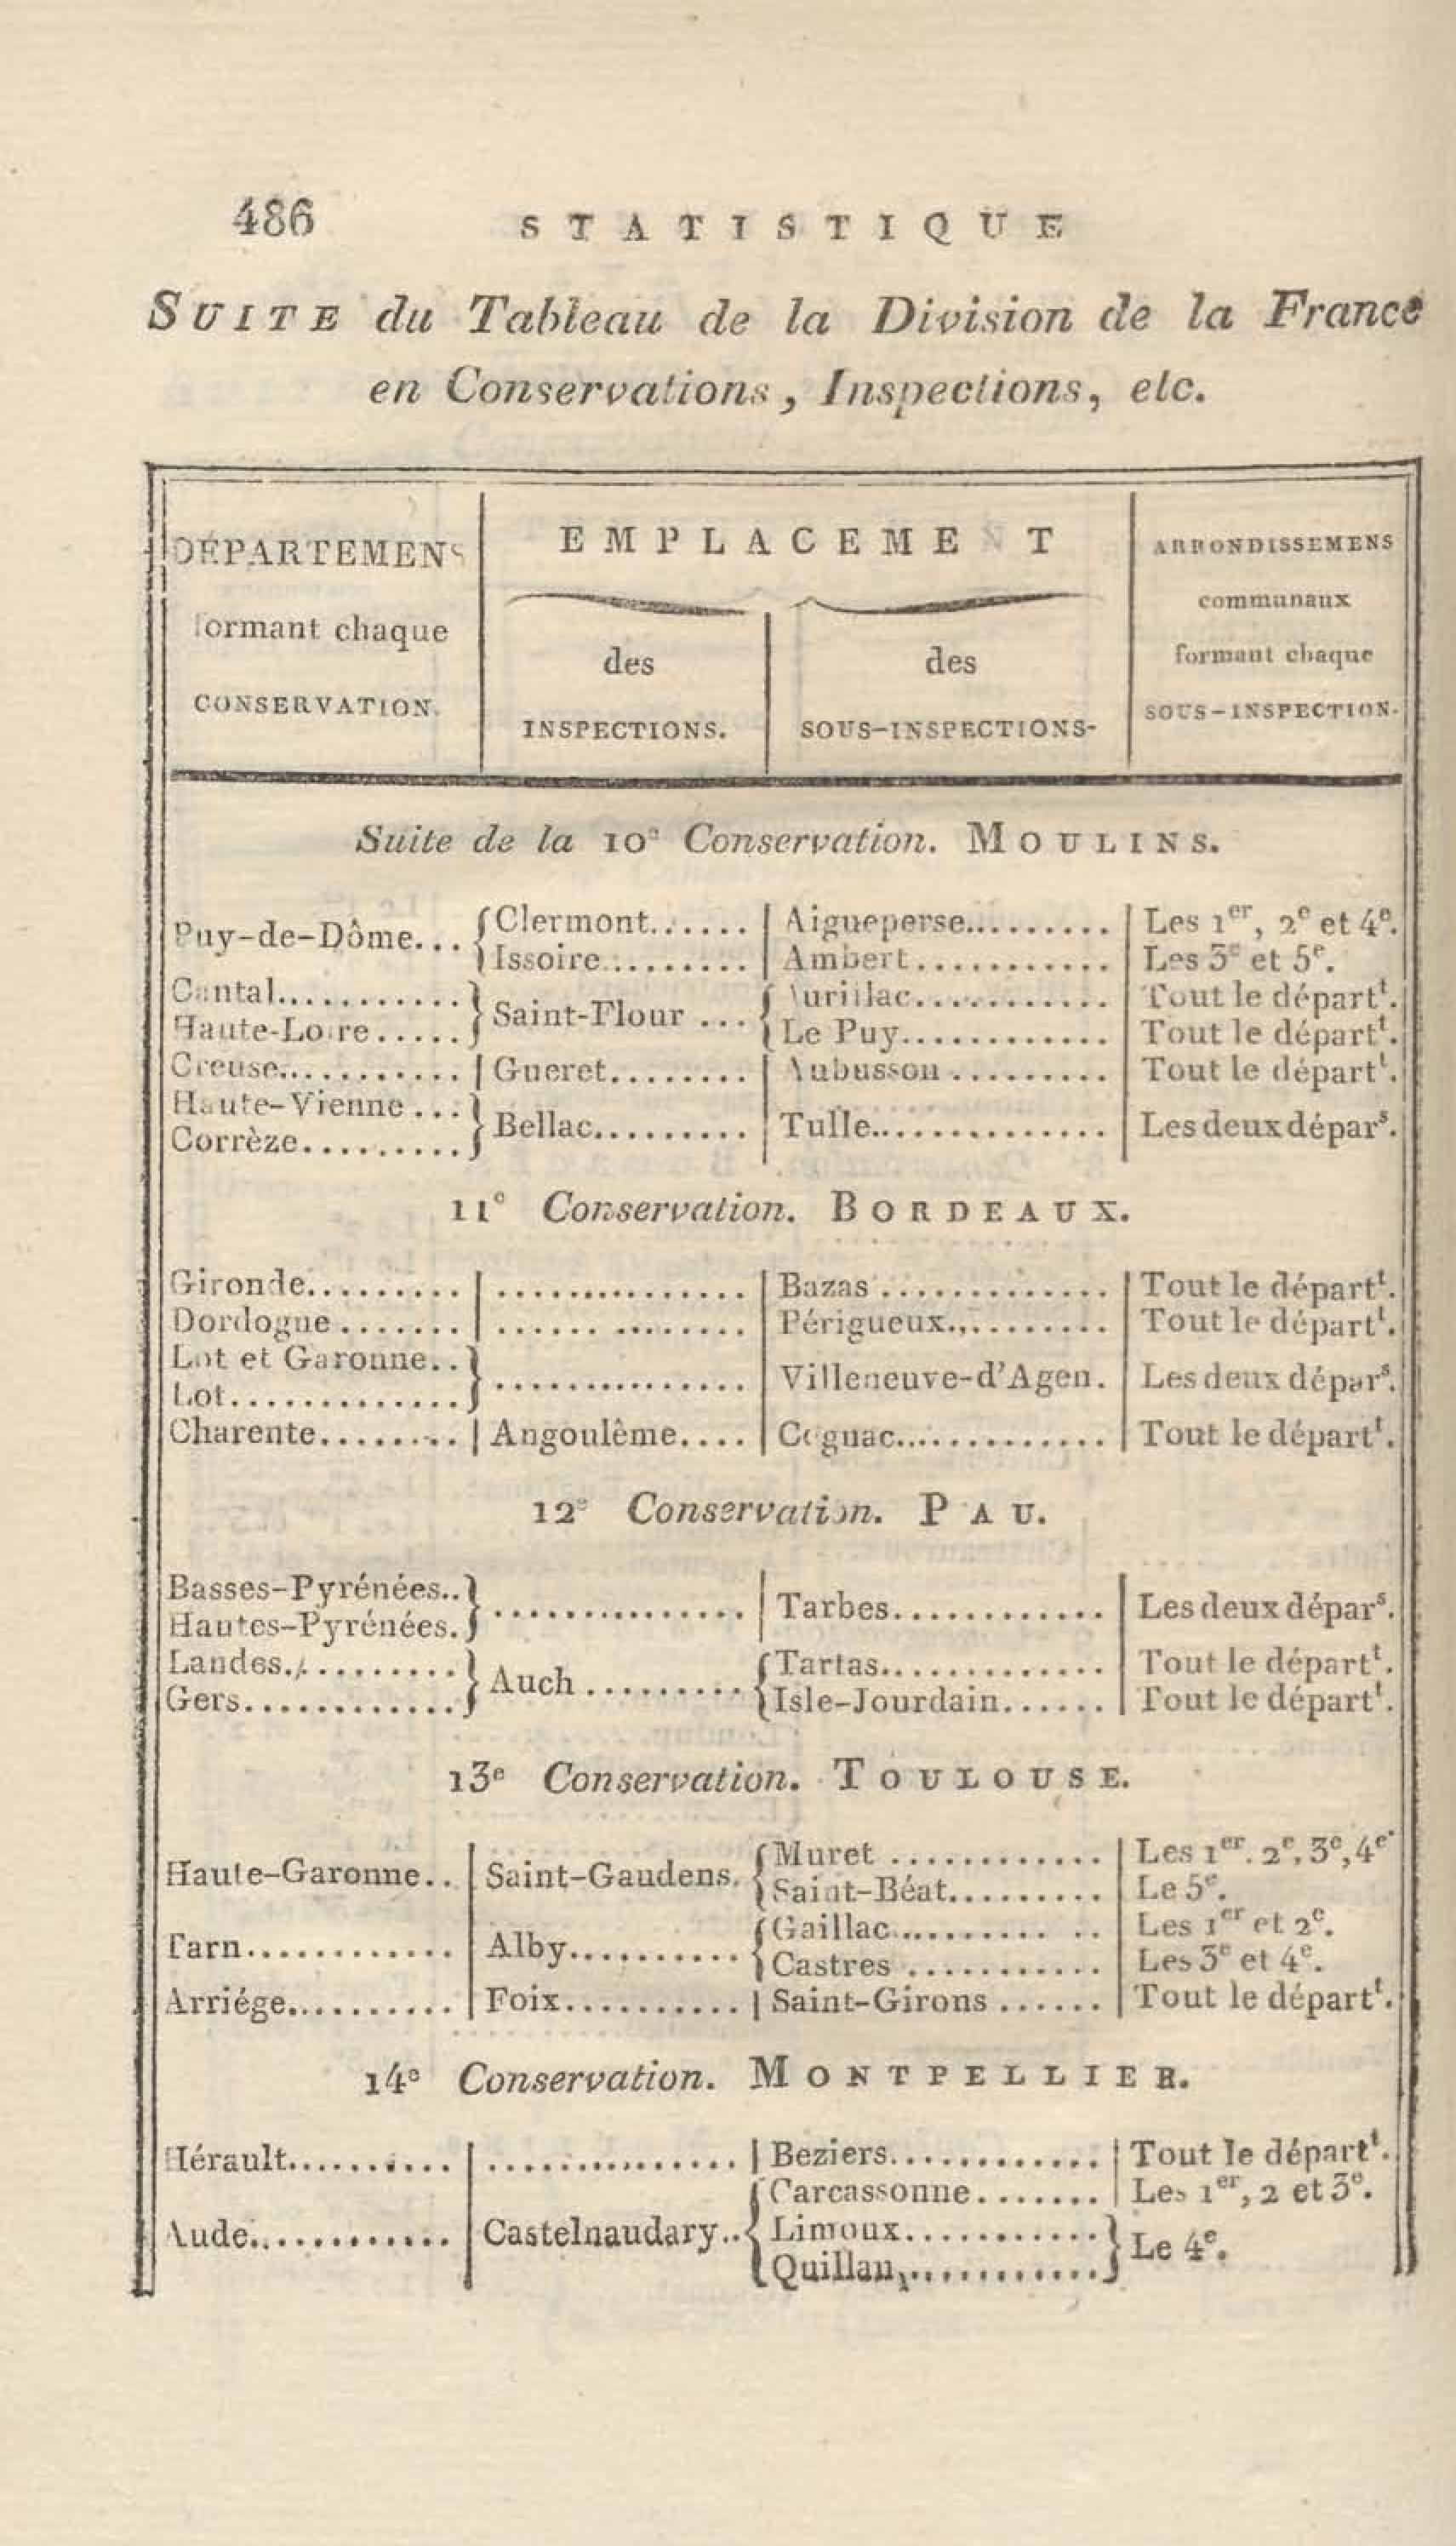 486 STATISTIQUE
SUITE du Tableau de la Division de la France
en Conservations, Inspections, etc.
DÉPARTEMENS
formant chaque
CONSERVATION.
EMPLACEMENT
des
INSPECTIONS.
des
SOUS-INSPECTIONS-
ARRONDISSEMENS
communaux
formant chaque
SOUS-INSPECTION.
Suite de la 10e Conservation. MOULINS.
Puy-de-Dôme... { Clermont....... | Aigueperse.......... | Les 1er, 2e et 4e.
Issoire.......... | Ambert............ | Les 3e et 5e.
Cantal............ } Saint-Flour ... { Aurillac............ | Tout le départt.
Haute-Loire..... } Le Puy............. | Tout le départt.
Creuse............ | Gueret......... | Aubusson .......... | Tout le départt.
Haute-Vienne ... } Bellac.......... | Tulle............... | Les deux dépars.
Corrèze.......... }
11e Conservation. BORDEAUX.
Gironde.......... | ............... | Bazas ............. | Tout le départt.
Dordogne ....... | ...... ........ | Périgueux.,........ | Tout le départt.
Lot et Garonne.. } ............... | Villeneuve-d'Agen. | Les deux dépars.
Lot............. }
Charente......... | Angoulême.... | Cognac............. | Tout le départt.
12e Conservation. PAU.
Basses-Pyrénées.. } ............... | Tarbes............. | Les deux dépars.
Hautes-Pyrénées. }
Landes........... } Auch .......... { Tartas.............. | Tout le départt.
Gers............. } Isle-Jourdain...... | Tout le départt.
13e Conservation. TOULOUSE.
Haute-Garonne.. | Saint-Gaudens. { Muret ............. | Les 1er. 2e, 3e, 4e
Saint-Béat.......... | Le 5e.
Tarn............. | Alby........... { Gaillac.......... .. | Les 1er et 2e.
Castres ............ | Les 3e et 4e.
Arriége........... | Foix........... | Saint-Girons ...... | Tout le départt.
14e Conservation. MONTPELLIER.
Hérault........... | ............... | Beziers............. | Tout le départt.
Carcassonne....... | Les 1er, 2 et 3e.
Aude............. | Castelnaudary.. { Limoux............ } Le 4e.
Quillan,............ }